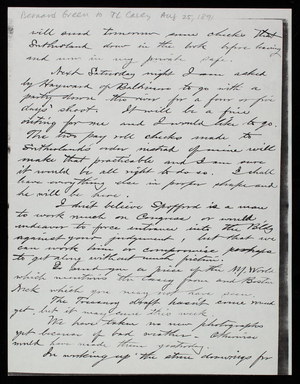 Bernard Green to TL Casey Aug. 25, 1891
will send tomorrow some checks that
Sutherland down in the book before having
and now in my private safe.
Next Saturday night I am asked
by Hayward of Baltimore to go with a
party down the river for a four or five
days' shoot. It will be a fine
outing for me and I would like to go.
The two pay roll checks made to
Sutherland's order instead of mine will
make that practicable and I am sure
it would be all right to do so. I shall
have everything else in proper shape and
he will be here.
I don't believe Spofford is a man
to work much on Congress or would
endeavor to force entrance into the Bldg
against your judgment, but that we
can work him or compromise perhaps
to get along without much friction.
I send you a piece of the N.Y. World
which mentions the Casey farm and Boston
Neck which you may not have seen.
The Treasury draft hasn't come
yet, but it may come this week.
We have taken no new photographs
yet because of bad weather. Otherwise
would have made them yesterday.
In working up the stone drawings for